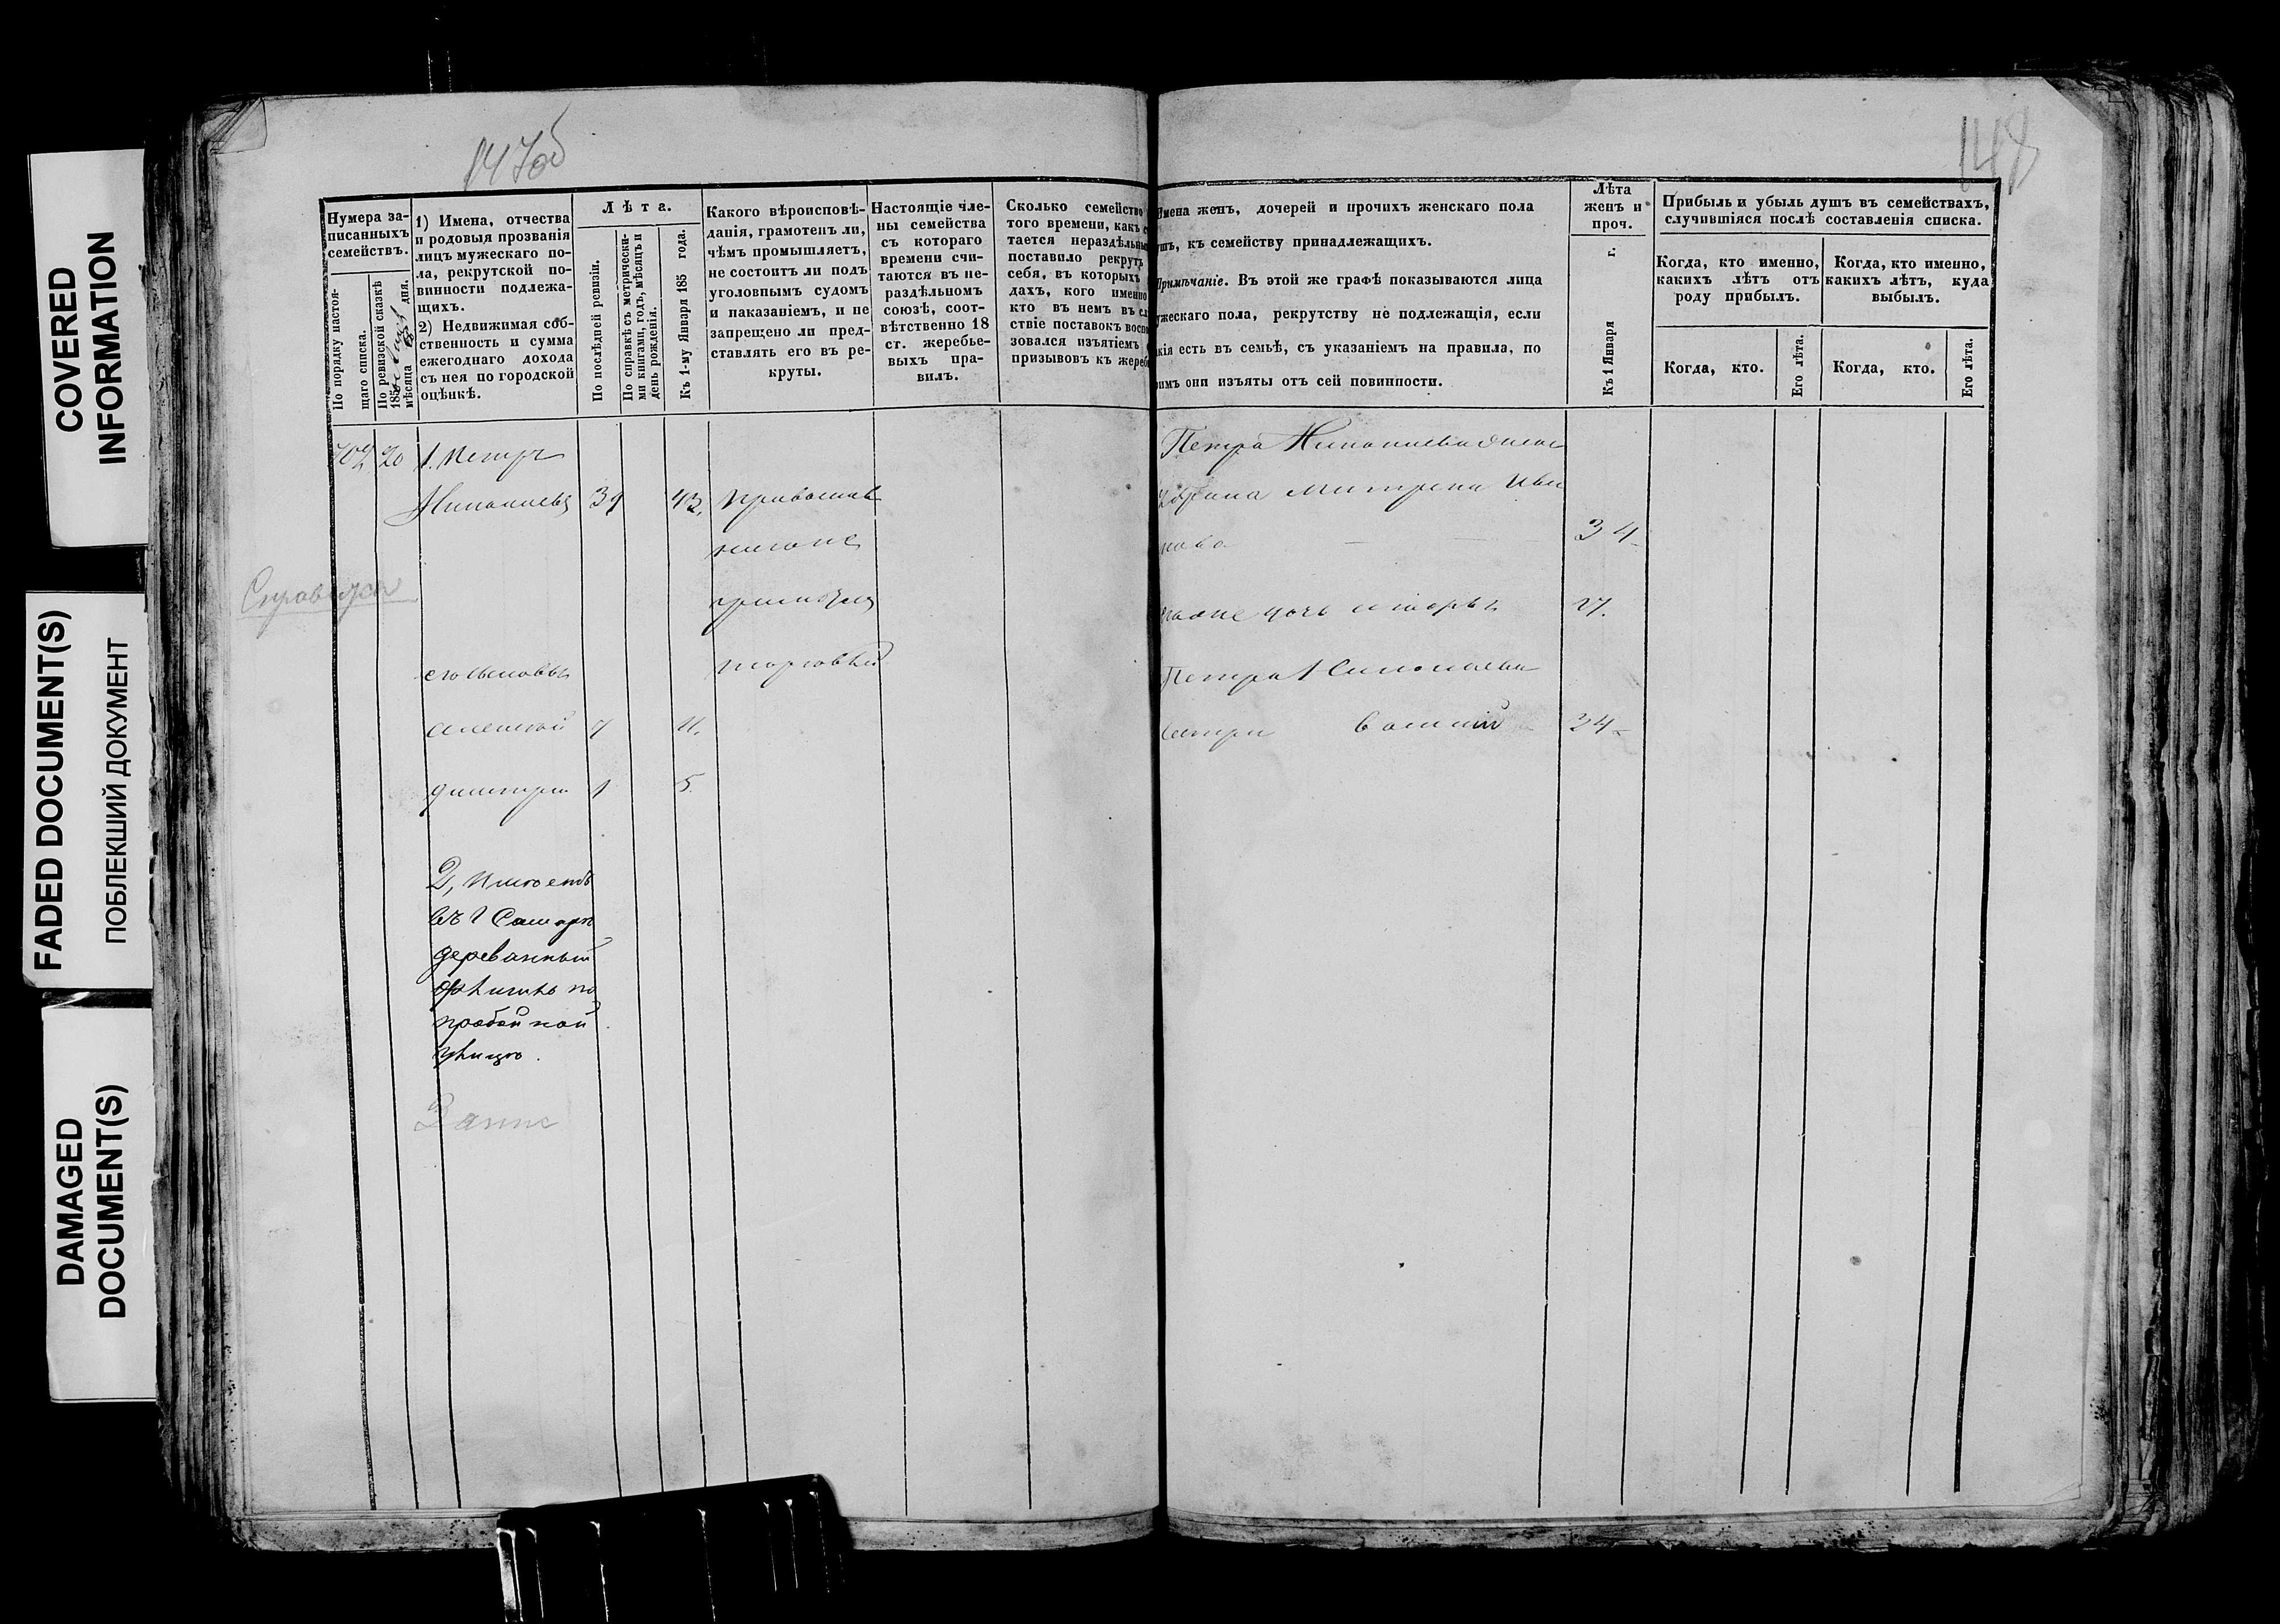 COVERED
INFORMATION
FADED DOCUMENT(S)
ПОБЛЕКШИЙ ДОКУМЕНТ
DAMAGED
DOCUMENT(S)
147об
148
Нумера за-
писанныхъ
семействъ.
По порядку настоя-
щаго списка.
По ревизской сказкѣ
185
мѣсяца дня.
1) Имена, отчества
и родовыя прозванія
лицъ мужескаго по-
ла, рекрутской по-
винности подлежа-
щихъ.
2) Недвижимая соб-
ственность и сумма
ежегоднаго дохода
съ нея по городской
оцѣнкѣ.
Лѣта.
По послѣдней ревизіи.
По справкѣ съ метрически-
ми книгами, годъ, мѣсяцъ и
день рожденія.
Къ 1-му Января 185 года.
Какого вѣроисповѣ-
данія, грамотенъ ли,
чѣмъ промышляетъ,
не состоитъ ли подъ
уголовнымъ судомъ
и наказаніемъ, и не
запрещено ли пред-
ставлять его въ ре-
круты.
Настоящіе чле-
ны семейства
съ котораго
времени счи-
таются въ не-
раздѣльномъ
союзѣ, соот-
вѣтственно 18
ст. жеребье-
выхъ пра-
вилъ.
Сколько семейство
того времени, какъ с
тается нераздѣльны
поставило рекрутъ
себя, въ которыхъ
дахъ, кого именно
кто въ немъ въ сл
ствіе поставокъ воспо
зовался изъятіемъ
призывовъ къ жереб
Имена женъ, дочерей и прочихъ женскаго пола
ушъ, къ семейству принадлежащихъ.
Примѣчаніе. Въ этой же графѣ показываются лица
ужескаго пола, рекрутству не подлежащія, если
кія есть въ семьѣ, съ указаніемъ на правила, по
оимъ они изъяты отъ сей повинности.
Лѣта
женъ и
проч.
Къ 1 Января г.
Прибыль и убыль душъ въ семействахъ,
случившіяся послѣ составленія списка.
Когда, кто именно,
какихъ лѣтъ отъ
роду прибылъ.
Когда, кто именно,
какихъ лѣтъ, куда
выбылъ.
Когда, кто.
Его лѣта.
Когда, кто.
Его лѣта.
702 20 1. Петръ
Николаевъ 39 43,
его сыновья
алексей 7 11.
дмитри 1 5
2, имеетъ
въ г Самаре
деревянный
по
улице.
торговлей
Петра Николаева
34
17.
Петра Николаева
24